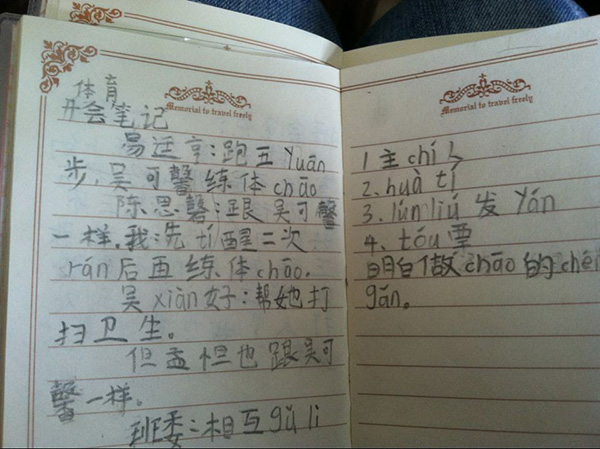 体育
开会笔记
Memorial to travel freely
易廷亨:跑五 Yuān
步,吴可馨练体chāo
陈思磬:跟吴可馨
一样.我:先tí醒二次
rán后再练体chāo.
吴xiàn好:帮她打
扫卫生。
但孟怛也跟吴可
馨一样。
班委:相互gǔ li
Memorial to travel freely
1 主chí人
2.huà tí
3.lún liú 发 Yán
4、tóu票
明白做chāo的
gǎn。